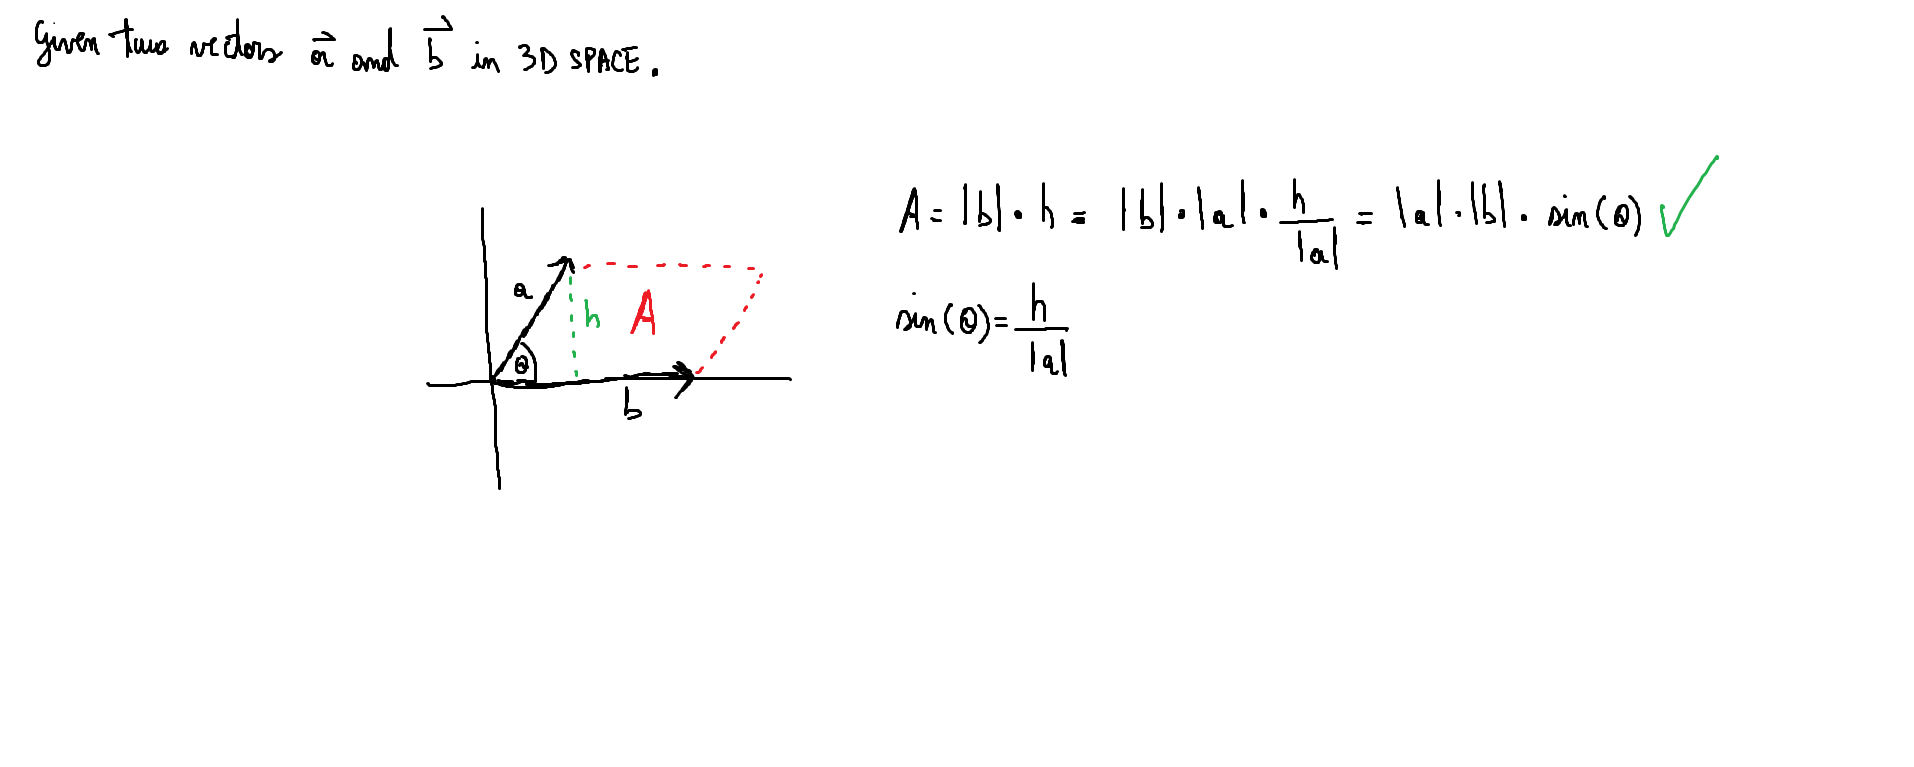 Given two vectors a⃗ and b⃗ in 3D SPACE.
A = |b| · h = |b| · |a| · h/|a| = |a| · |b| · sin(θ) ✓
a
h
A
sin(θ) = h/|a|
θ
b